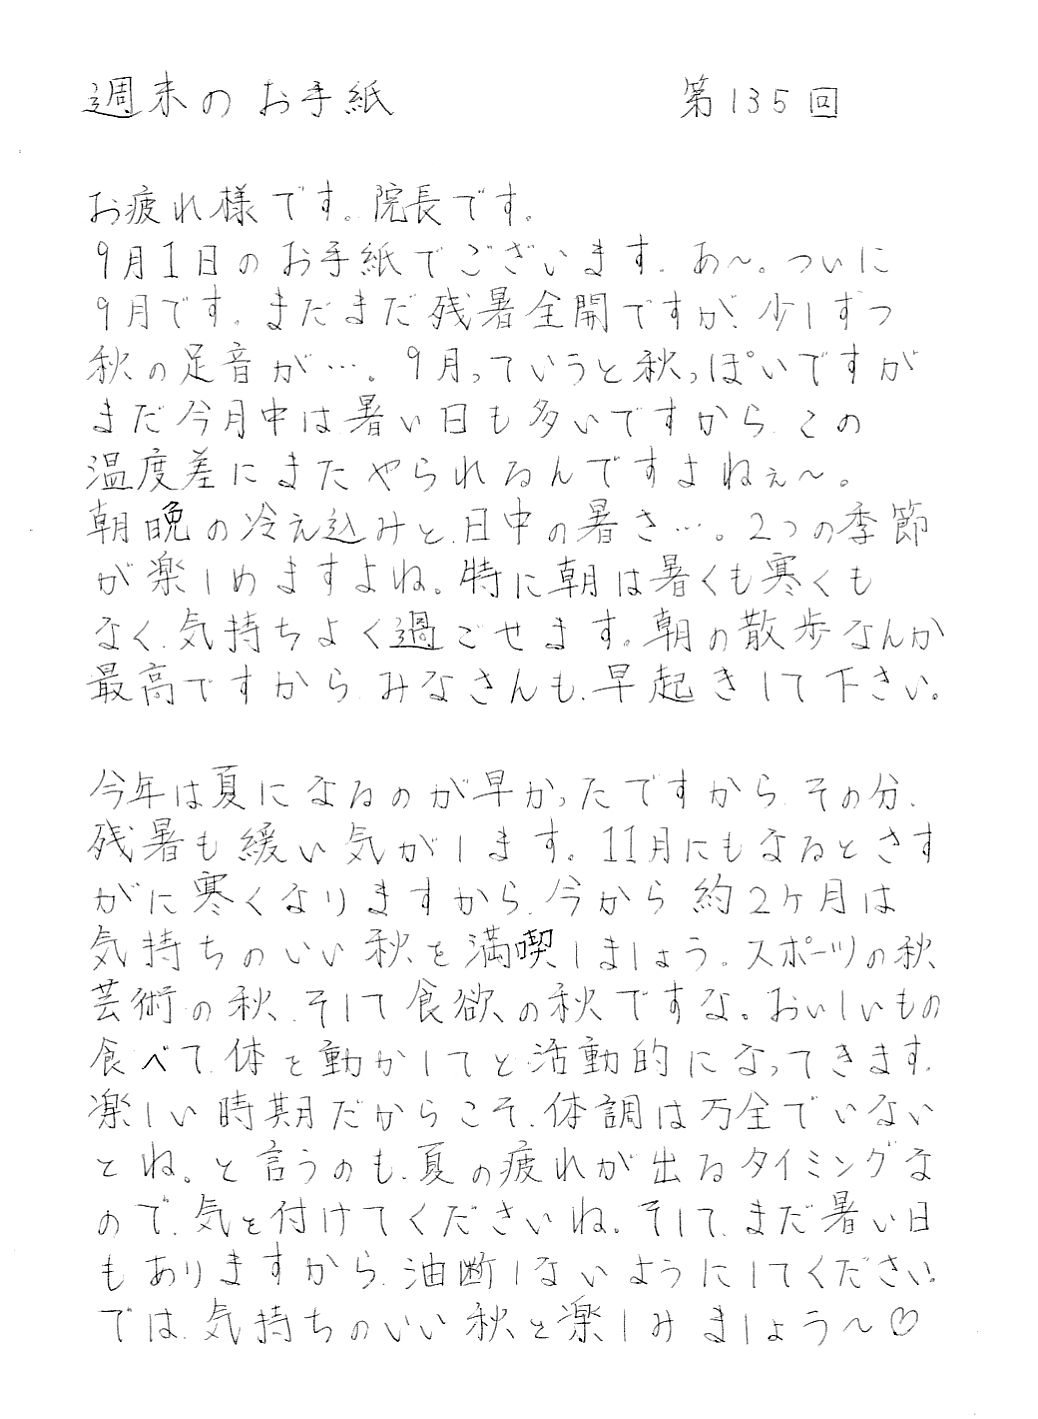 週末のお手紙　第135回
お疲れ様です。院長です。
9月1日のお手紙でございます。あ〜。ついに
9月です。まだまだ残暑全開ですが、少しずつ
秋の足音が…。9月っていうと秋っぽいですが
まだ今月中は暑い日も多いですから、この
温度差にまたやられるんですよねぇ〜。
朝晩の冷え込みと、日中の暑さ…。2つの季節
が楽しめますよね。特に朝は暑くも寒くも
なく、気持ちよく過ごせます。朝の散歩なんか
最高ですから、みなさんも、早起きして下さい。
今年は夏になるのが早かったですから、その分、
残暑も緩い気がします。11月にもなるとさす
がに寒くなりますから、今から約2ヶ月は
気持ちのいい秋を満喫しましょう。スポーツの秋、
芸術の秋、そして食欲の秋ですな。おいしいもの
食べて、体を動かしてと活動的になってきます。
楽しい時期だからこそ、体調は万全でいない
とね。と言うのも、夏の疲れが出るタイミングな
ので、気を付けてくださいね。そして、まだ暑い日
もありますから、油断しないようにしてください。
では、気持ちのいい秋を楽しみましょう〜♡